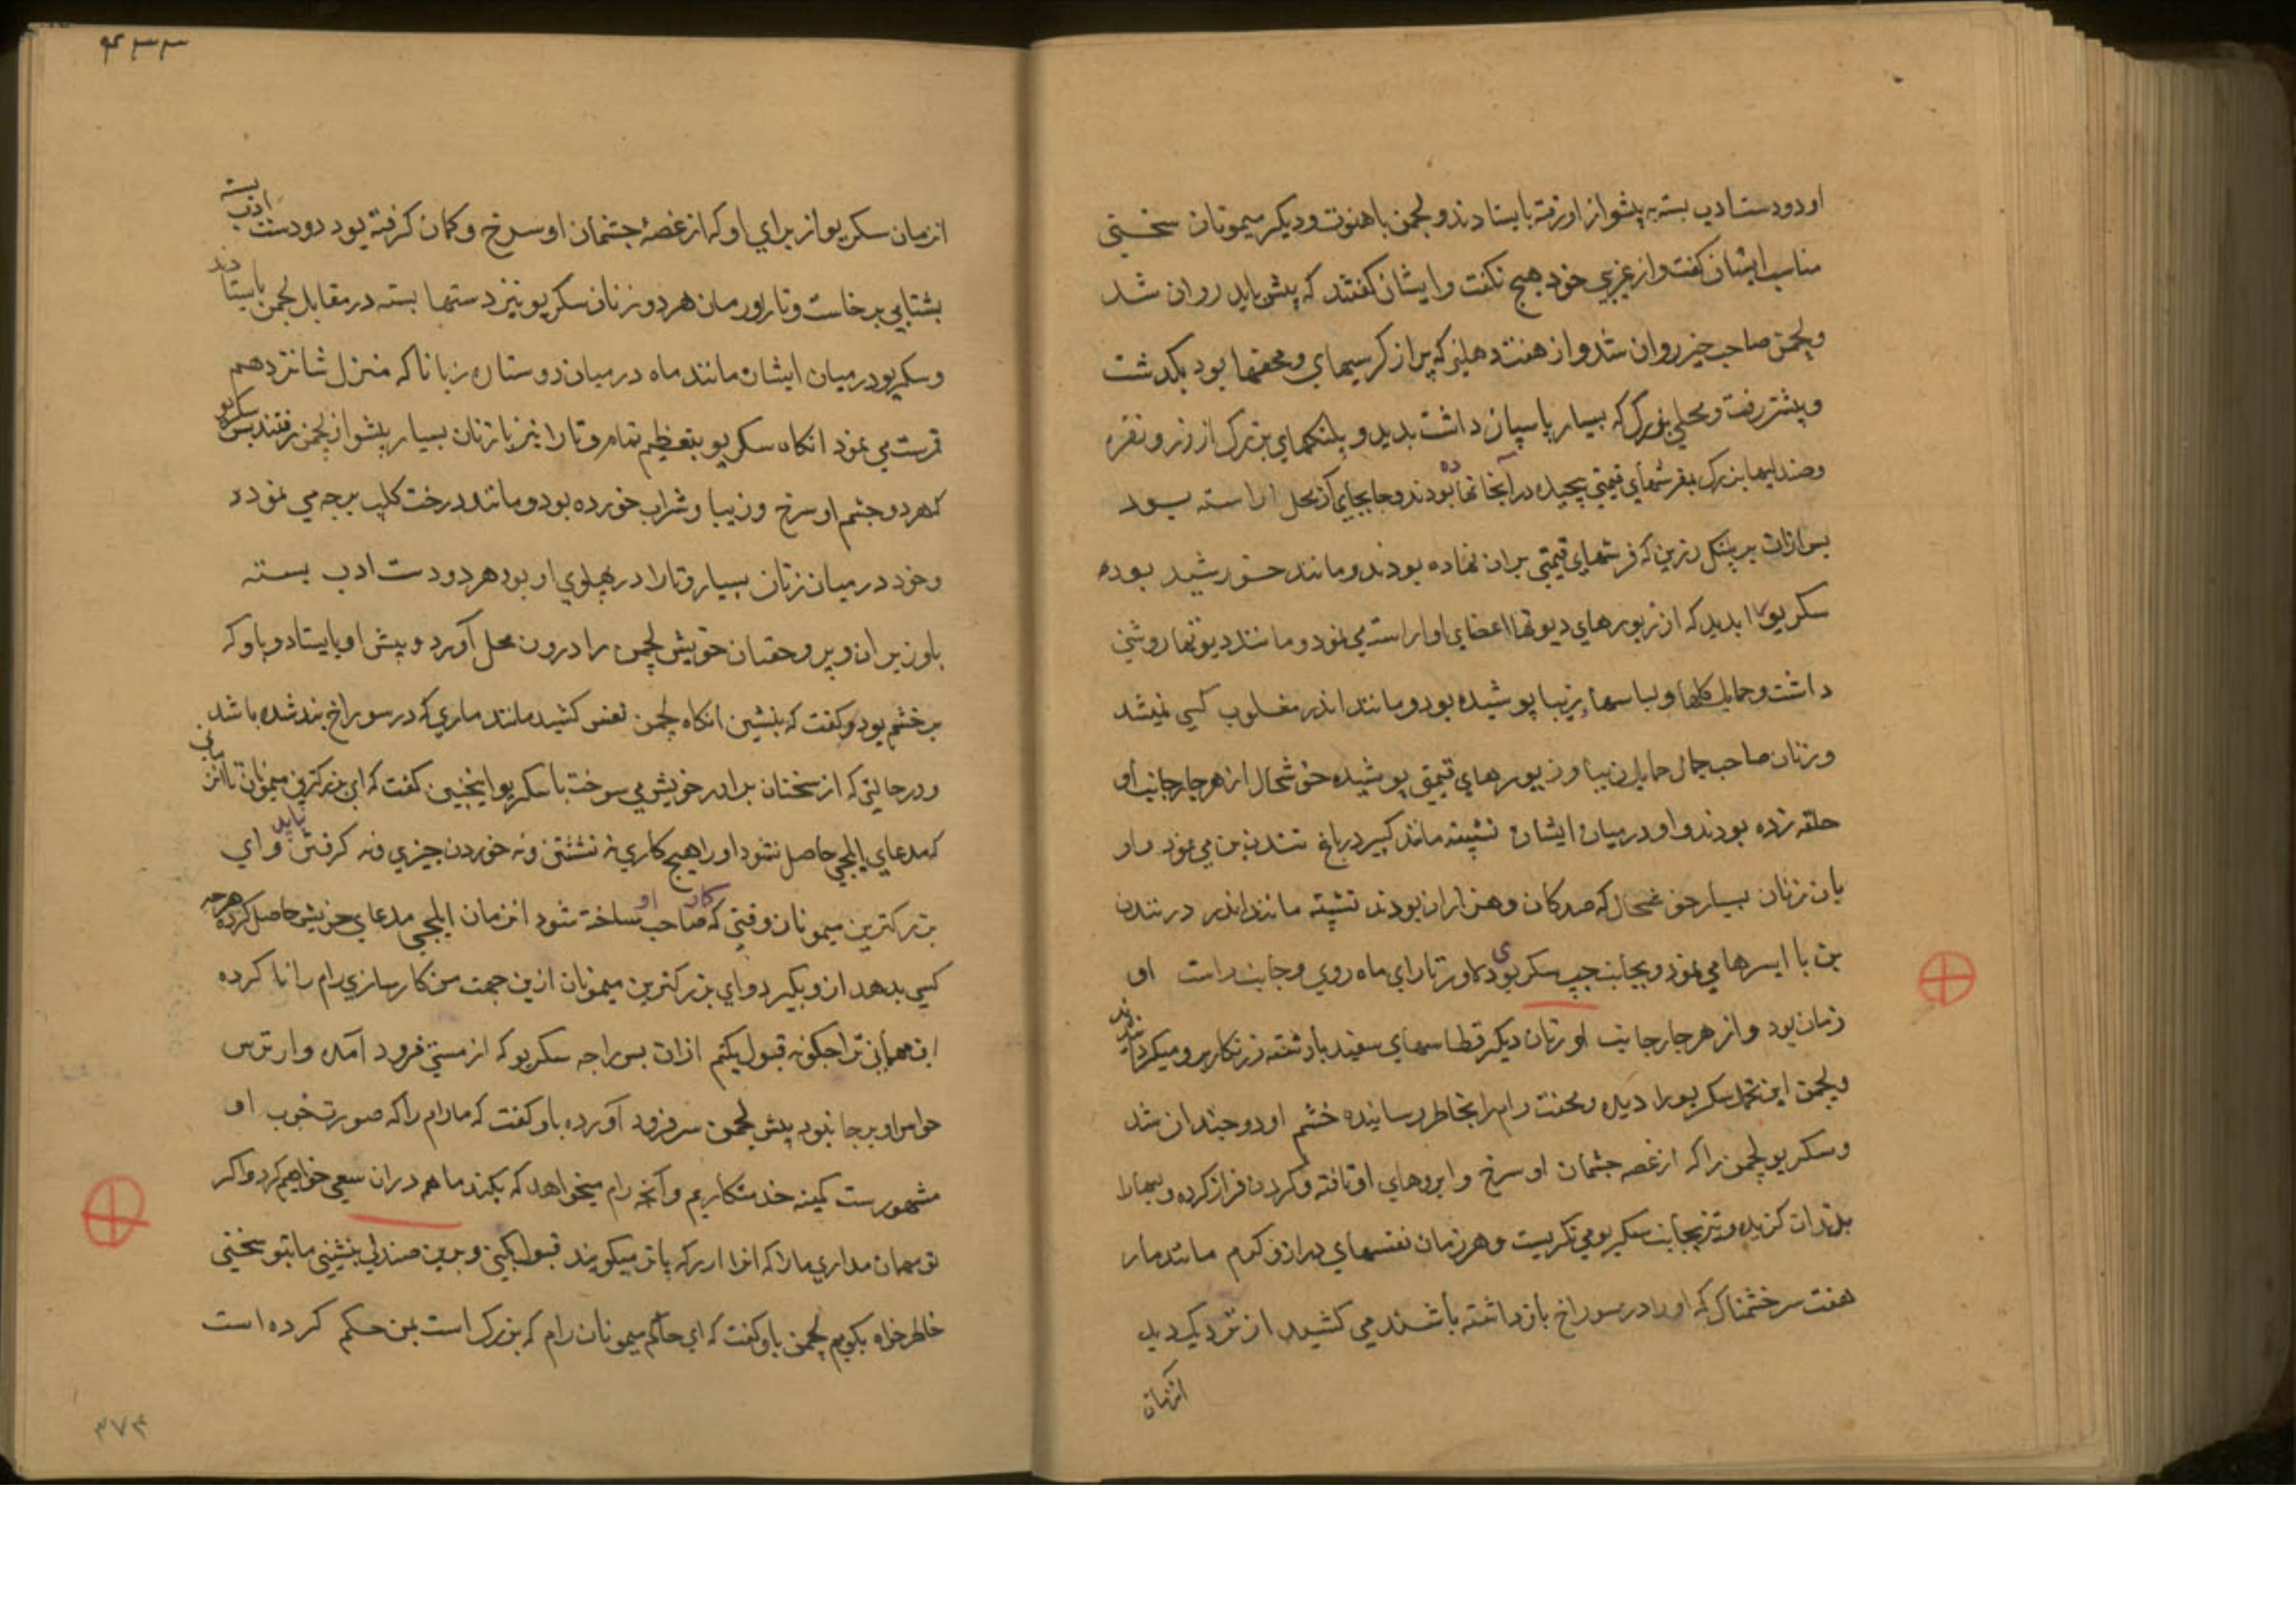 او دو دست ادب بسته به پیشواز او رفته بایستادند و لچمن با هنونت و دیکر میمونان سخنی
مناسب ایشان کفت و از غریبی خود هیچ نکفت و ایشان کفتند که پیش باید روان شد
و لچمن صاحب خیر روان شد و از هفت دهلیز که پر از کرسیهای و محفها بود بکذشت
و پیشتر رفت و محلی بزرک که بسیار پاسپان داشت بدید و پلنکهای بزرک از زر و نقره
و صندلیها بزرک بفرشهای قیمتی پیچیده در آنجا نهاده بودند و جابجای آن محل اراسته بود
پس ازان بر پلنک زرین که فرشهای قیمتی بران نهاده بودند و مانند خورشید بود
سکریو را بدید که از زیورهای دیوتها اعضای او اراسته می نمود و مانند دیوتها روشنی
داشت و حمایل کلها و لباسهاء زیبا پوشیده بود و مانند اندر مغلوب کسی نمیشد
و زنان صاحب جمال حمایل زیبا و زیورهای قیمتی پوشیده خوشحال از هر چار جانب او
حلقه زده بودند و او در میان ایشان نشسته مانند کبیر در باغ نندن بن می نمود و او
بان زنان بسیار خوشحال که صدکان و هزاران بودند نشسته مانند اندر در نندن
بن با اپسرها می نمود و بجانب چپ سکریو دلاور تارای ماه روی و جانب راست او
زمان بود و از هر چار جانب او زنان دیکر قطاسهای سفید با دسته زرنکار برو میکردانیدند
و لچمن این نحمد سکریو را دیده و محنت رام را بخاطر رسانیده خشم او دو چندان شد
و سکریو لچمن را که از غصه چشمان او سرخ و ابروهای او تافته و کردن فراز کرده و لبها را
بدندان کزیده و تیز بجانب سکریو می نکریست و هر زمان نفسهای دراز و کرم مانند مار
هفت سر خشمناک که او را در سوراخ بازداشته باشند می کشید از نزدیک دید
انزمان
۴۳۳
انزمان سکریو از برای او که از غصه چشمان او سرخ و کمان کرفته بود دو دست ادب بسته
بشتابی برخاست و تارا و رمان هر دو زنان سکریو نیز دستها بسته در مقابل لچمن بایستادند
و سکریو در میان ایشان مانند ماه در میان دو ستاره زبانا که منزل شانزدهم
قمرست می نمود انکاه سکریو بتعظیم تمام و تارا نیز با زنان بسیار پیشواز لچمن رفتند پس سکریو
که هر دو چشم او سرخ و زیبا و شراب خورده بود و مانند درخت کلپ برچه می نمود
و خود در میان زنان بسیار و تارا در پهلوی او بود هر دو دست ادب بسته
با وزیران و پروهتان خویش لچمن را درون محل آورد و پیش او بایستاد و باو که
برخشم بود و کفت که بنشین انکاه لچمن نفس کشید مانند ماری که در سوراخ بند شده باشد
و در حالتی که از سخنان برادر خویش می سوخت با سکریو اینچنین کفت که ای بزرکترین میمونان تا زمانی
که مدعای ایلچی حاصل نشود او را هیچ کاری نه نشستن و نه خوردن چیزی و نه کرفتن باید و ای
بزرکترین میمونان وقتی که کار صاحب او ساخته شود انزمان ایلچی مدعای خویش حاصل کرده هرچه
کسی بدهد ازو بکیرد و ای بزرکترین میمونان ازین جهت من کارسازی رام را نا کرده
این مهمانی ترا چکونه قبول بکنم ازان پس راجه سکریو که از مستی فرود آمده و از ترس
حواس او برجا نبود پیش لچمن سر فرود آورده باو کفت که ما رام را که صورت خوب او
مشهورست کمینه خدمتکاریم و آنچه رام میخواهد که بکند ما هم دران سعی خواهیم کرد و اکر
تو مهمان مداری ما را که انرا ارکه پاتر میکویند قبول بکنی و برین صندلی بنشینی ما بتو سخنی
خاطرخواه بکویم لچمن باو کفت که ای حاکم میمونان رام که بزرک است بمن حکم کرده است
۳۷۴